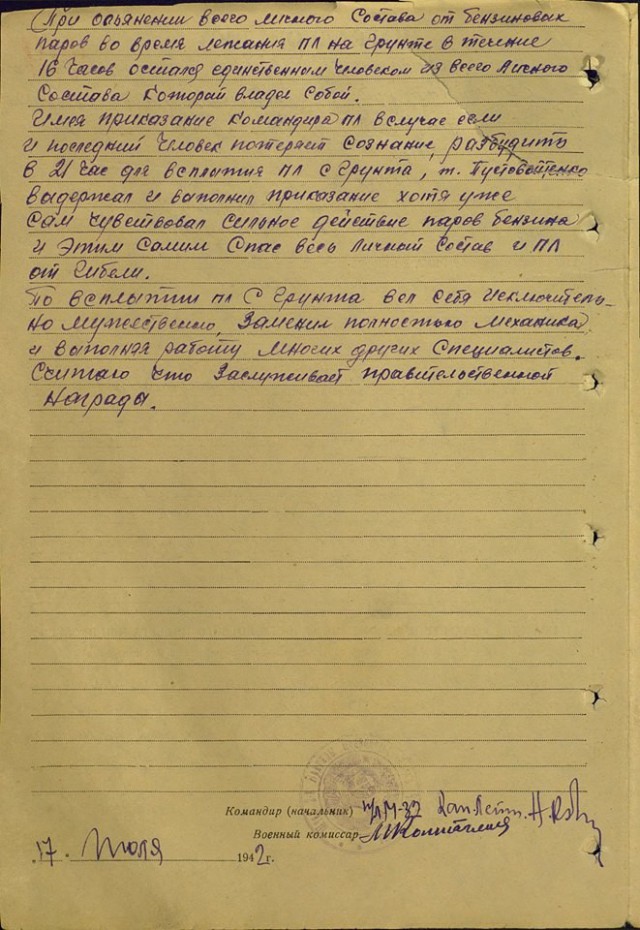 При опьянении всего личного состава от бензиновых
паров во время лежания ПЛ на грунте в течение
16 часов остался единственным человеком из всего личного
состава который владел собой.
Имея приказание командира ПЛ в случае если
и последний человек потеряет сознание, разбудить
в 21 час для всплытия ПЛ с грунта, т. Пустовойтенко
выдержал и выполнил приказание хотя уже
сам чувствовал сильное действие паров бензина
и этим самим спас весь личный состав и ПЛ
от гибели.
По всплытии пл с грунта вел себя исключитель-
но мужественно, заменил полностью механика
и выполняя работу многих других специалистов.
Считаю что заслуживает правительственной
награды.
Командир (начальник) п/л М-32 Кап. Лейт.
Военный комиссар
17. Июля 1942г.